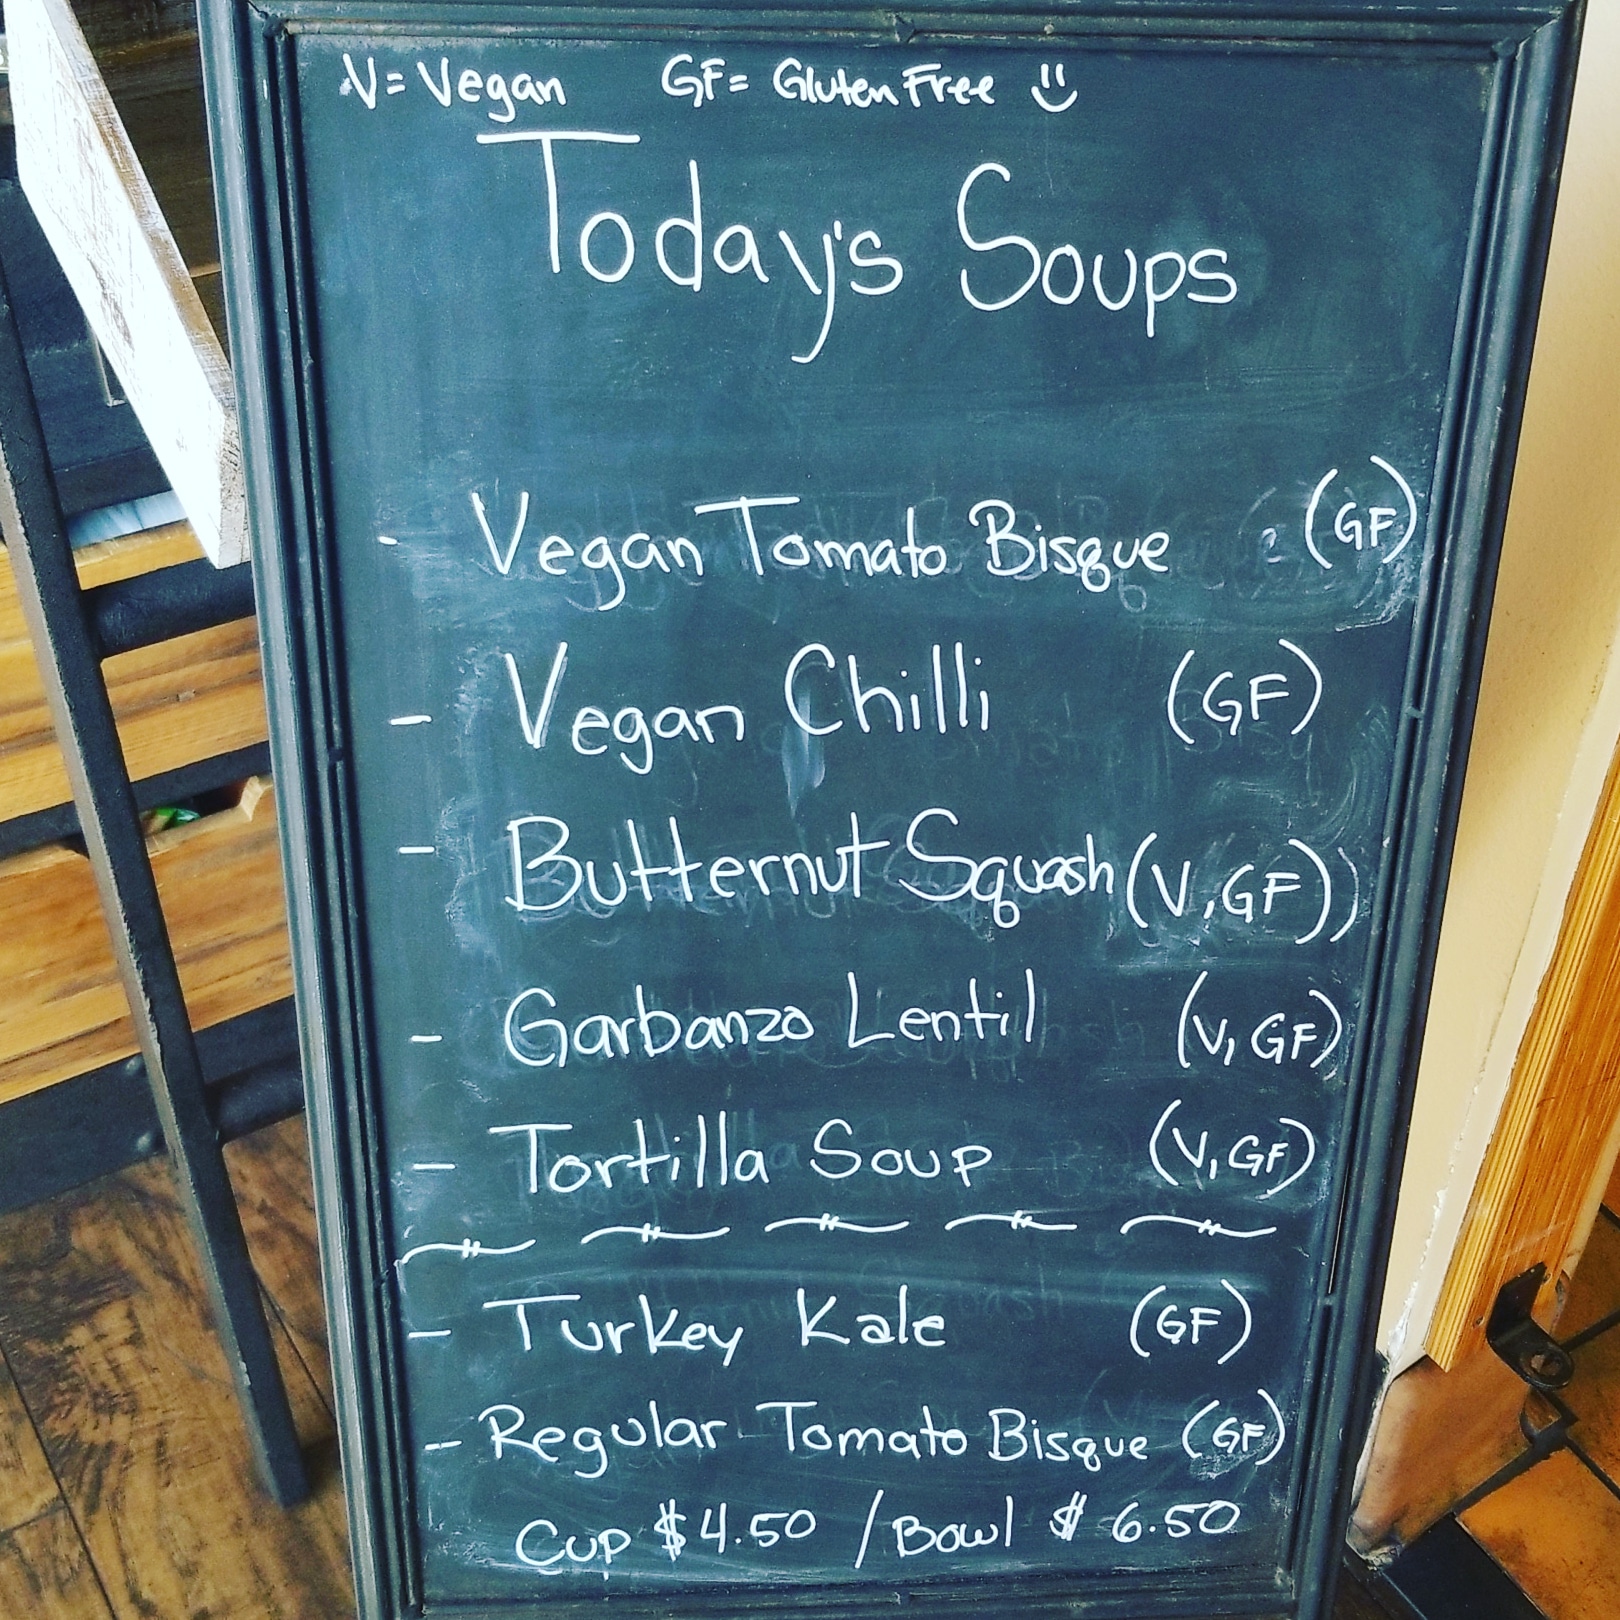 V= Vegan GF= Gluten Free
Today's Soups
- Vegan Tomato Bisque (GF)
- Vegan Chilli (GF)
- Butternut Squash (V,GF))
- Garbanzo Lentil (V, GF)
- Tortilla Soup (V, GF)
- Turkey Kale (GF)
- Regular Tomato Bisque (GF)
Cup $4.50 / Bowl $ 6.50